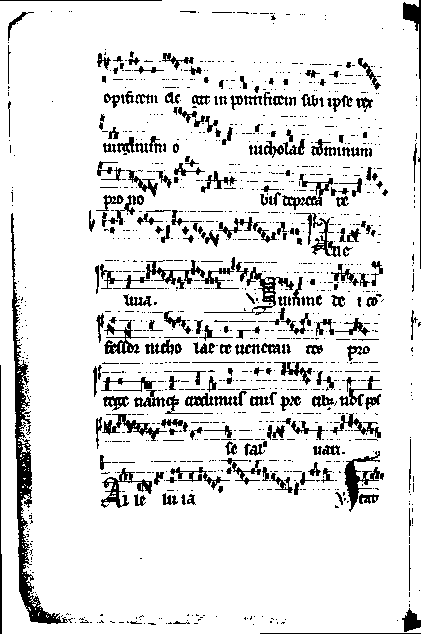 opificem ele git in pontificem sibi ipse rex
virginum o nicholae dominum
pro no bis depreca re
Alle
luia. Summe de i co
fessor nicho lae te veneran tes pro
tege namq credimus tuis pre cib nos pos
se sal vari.
Al le lu ia